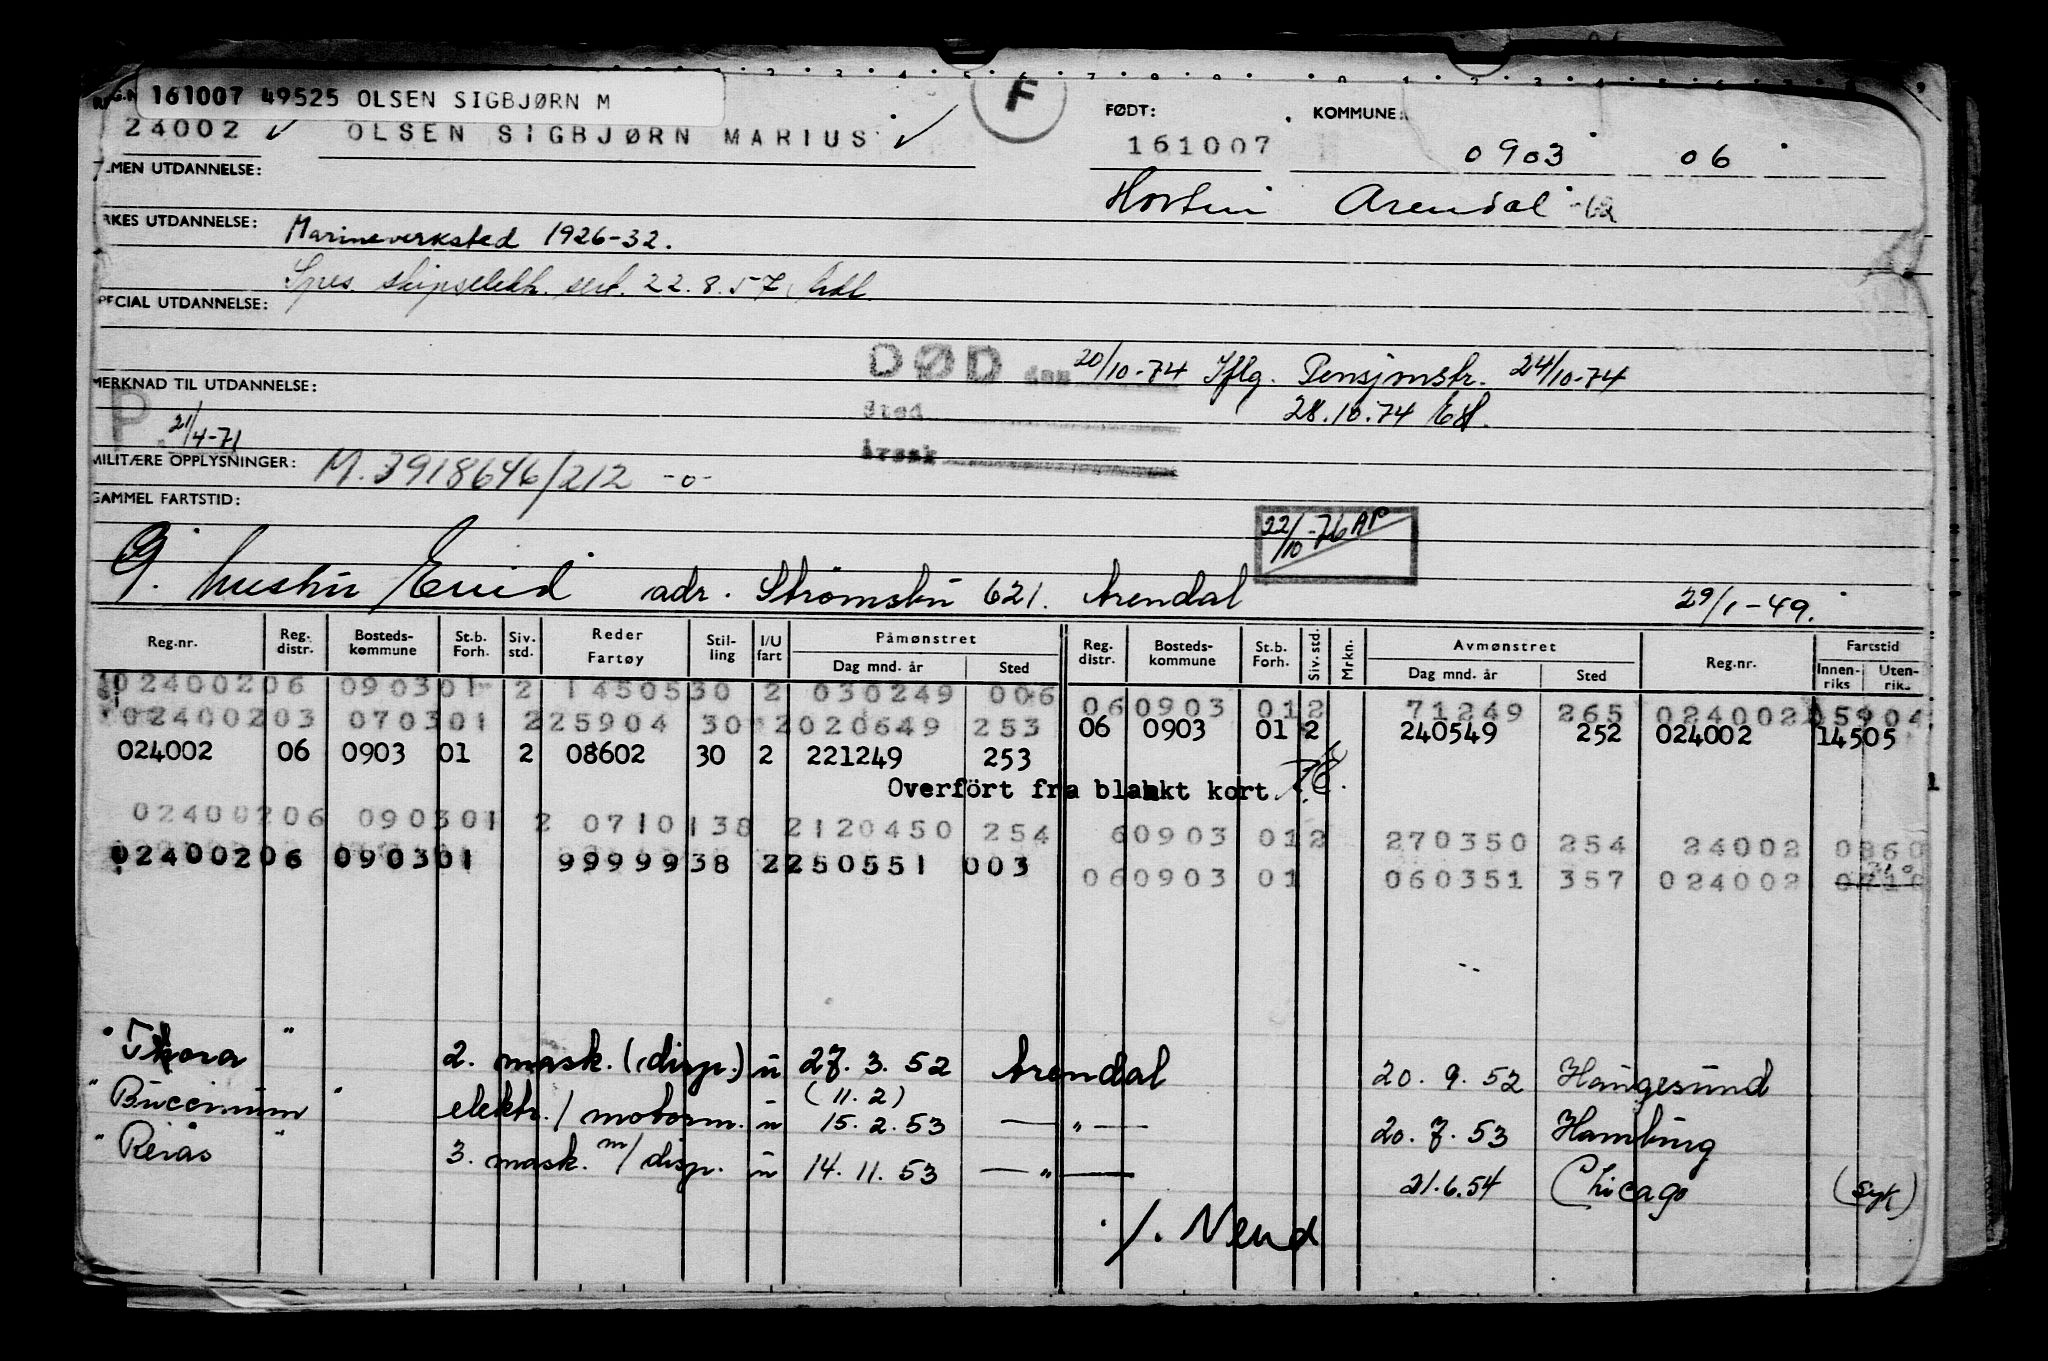 REG.N 161007 49525 OLSEN SIGBJØRN M
F
FØDT: KOMMUNE:
24002 ✓ OLSEN SIGBJØRN MARIUS ✓ 161007 0903 06
LMEN UTDANNELSE: Horten Arendal -62
RKES UTDANNELSE: Marineverksted 1926-32.
Spes. skipselektr. sert. 22.8.57
PECIAL UTDANNELSE:
DØD den 20/10-74 Iflg. Pensjonstr. 24/10-74
MERKNAD TIL UTDANNELSE:
Sted 28.10.74
P. 21/4-71
Årsak
MILITÆRE OPPLYSNINGER: M.3918646/212 -o-
GAMMEL FARTSTID:
22/10-76 AP
G. hustru adr. Strømsbu 621. Arendal 29/1-49.
Reg.nr. Reg. distr. Bosteds-kommune St.b. Forh. Siv. std. Reder Fartøy Stil-ling I/U fart Påmønstret Dag mnd. år Sted Reg. distr. Bosteds-kommune St.b. Forh. Siv. std. Mrkn. Avmønstret Dag mnd. år Sted Reg.nr. Fartstid Innen-riks Uten-riks
02400206 090301 2 1450530 2 030249 006 060903 012 71249 265 024002 05904
02400203 070301 225904 30 2020649 253 06 0903 01 2 240549 252 024002 14505
024002 06 0903 01 2 08602 30 2 221249 253
Overført fra blankt kort
02400206 090301 2 0710138 2120450 254 60903 012 270350 254 24002 0860
02400206 090301 9999938 2250551 003 060903 01 060351 357 024002 0710
" Thora " 2. mask. (disp.) u 27.3.52 Arendal 20.9.52 Haugesund
(11.2)
" Buccinum " elektr./motorm. u 15.2.53 — " — 20.7.53 Hamburg
" Reiås " 3. mask. m/disp. u 14.11.53 — " — 21.6.54 Chicago (syk)
./. Vend